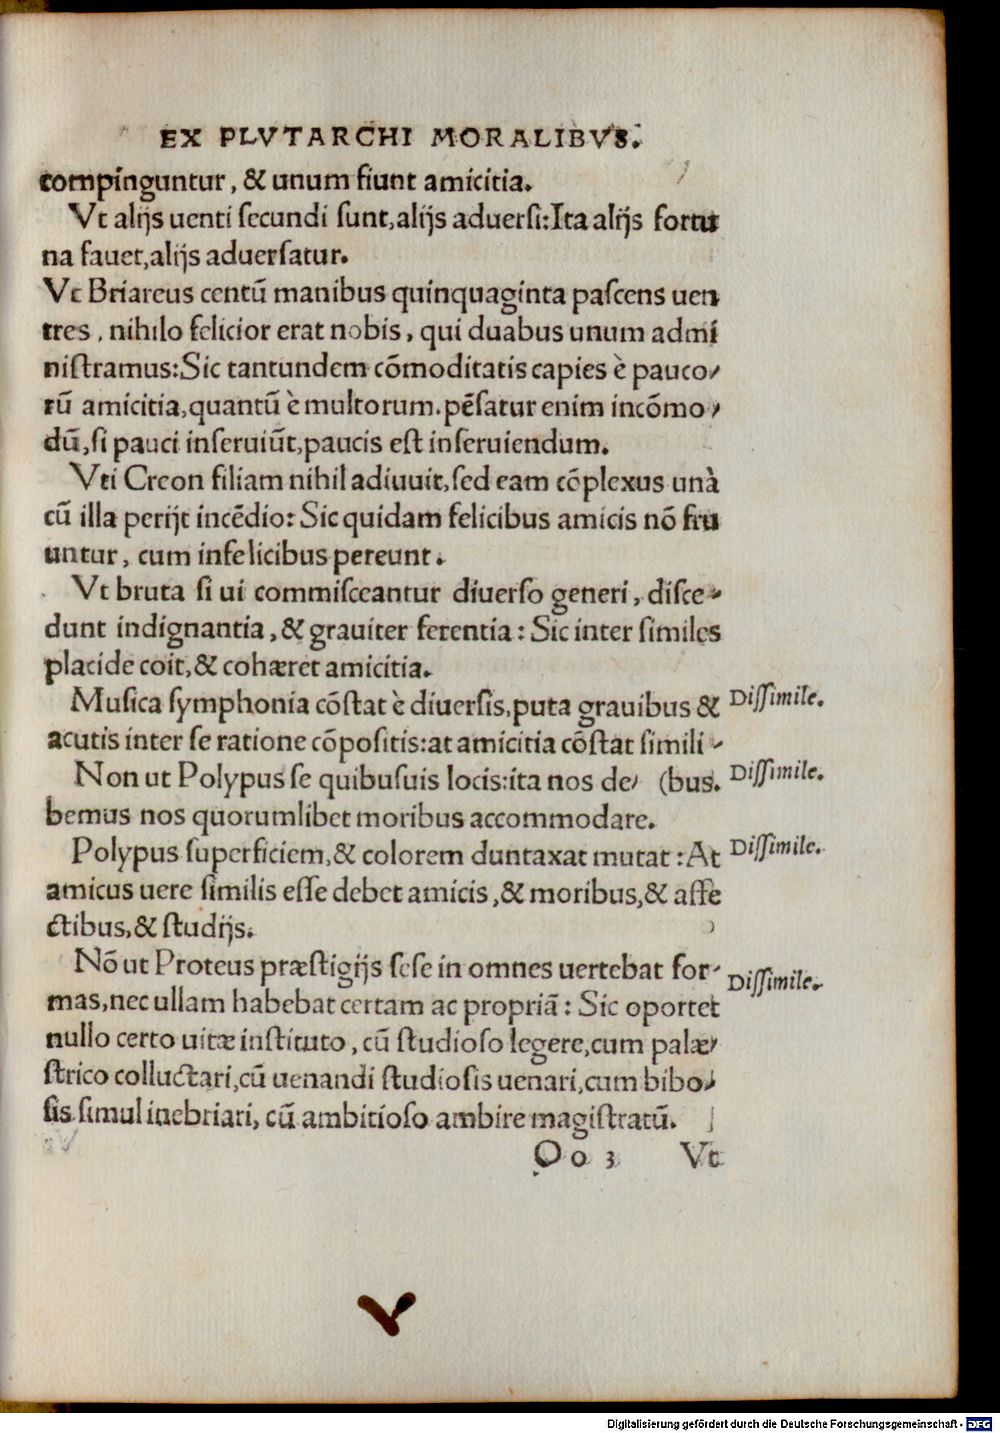 EX PLVTARCHI MORALIBVS.
compinguntur, & unum fiunt amicitia.
Vt alijs uenti secundi sunt, alijs aduersi: Ita alijs fortu
na fauet, alijs aduersatur.
Vt Briareus centũ manibus quinquaginta pascens uen
tres, nihilo felicior erat nobis, qui duabus unum admi
nistramus: Sic tantundem cõmoditatis capies è pauco/
rũ amicitia, quantũ è multorum. pẽsatur enim incõmo/
dũ, si pauci inseruiũt, paucis est inseruiendum.
Vti Creon filiam nihil adiuuit, sed eam cõplexus unà
cũ illa perijt incẽdio: Sic quidam felicibus amicis nõ fru
untur, cum infelicibus pereunt.
Vt bruta si ui commisceantur diuerso generi, disce/
dunt indignantia, & grauiter ferentia: Sic inter similes
placide coit, & cohæret amicitia.
Musica symphonia cõstat è diuersis, puta grauibus & Dissimile.
acutis inter se ratione cõpositis: at amicitia cõstat simili/
Non ut Polypus se quibusuis locis: ita nos de/ (bus. Dissimile.
bemus nos quorumlibet moribus accommodare.
Polypus superficiem, & colorem duntaxat mutat: At Dissimile.
amicus uere similis esse debet amicis, & moribus, & affe
ctibus, & studijs.
Nõ ut Proteus præstigijs sese in omnes uertebat for/ Dissimile.
mas, nec ullam habebat certam ac propriã: Sic oportet
nullo certo uitæ instituto, cũ studioso legere, cum palæ/
strico colluctari, cũ uenandi studiosis uenari, cum bibo/
sis simul inebriari, cũ ambitioso ambire magistratũ.
Oo 3 Vt
Digitalisierung gefördert durch die Deutsche Forschungsgemeinschaft - DFG